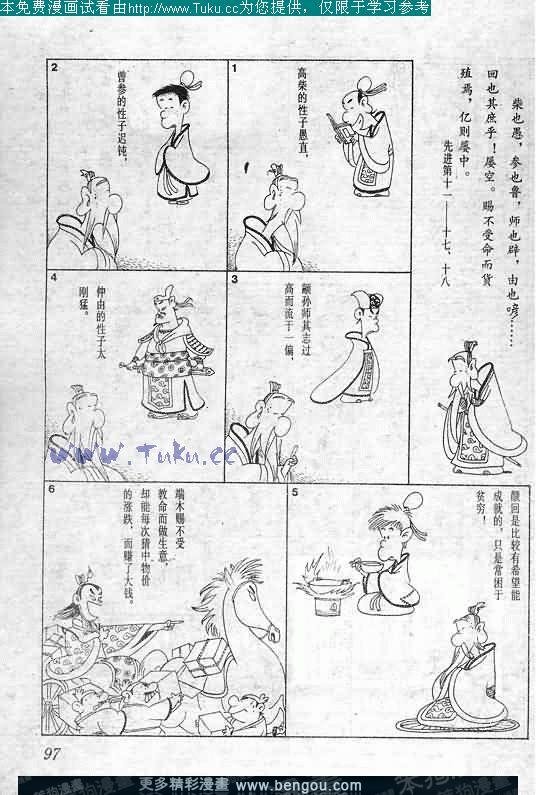 本免费漫画试看由http://www.Tuku.cc为您提供，仅限于学习参考
柴也愚，参也鲁，师也辟，由也喭……
回也其庶乎！屡空。赐不受命而货
殖焉，亿则屡中。
先进第十一——十七、十八
1
高柴的性子愚直，
2
曾参的性子迟钝，
3
颛孙师其志过
高而流于一偏，
4
仲由的性子太
刚猛。
www.Tuku.cc
5
颜回是比较有希望能
成就的，只是常困于
贫穷！
6
端木赐不受
教命而做生意，
却能每次猜中物价
的涨跌，而赚了大钱。
97
笨狗漫画
更多精彩漫画 www.bengou.com
笨狗漫画